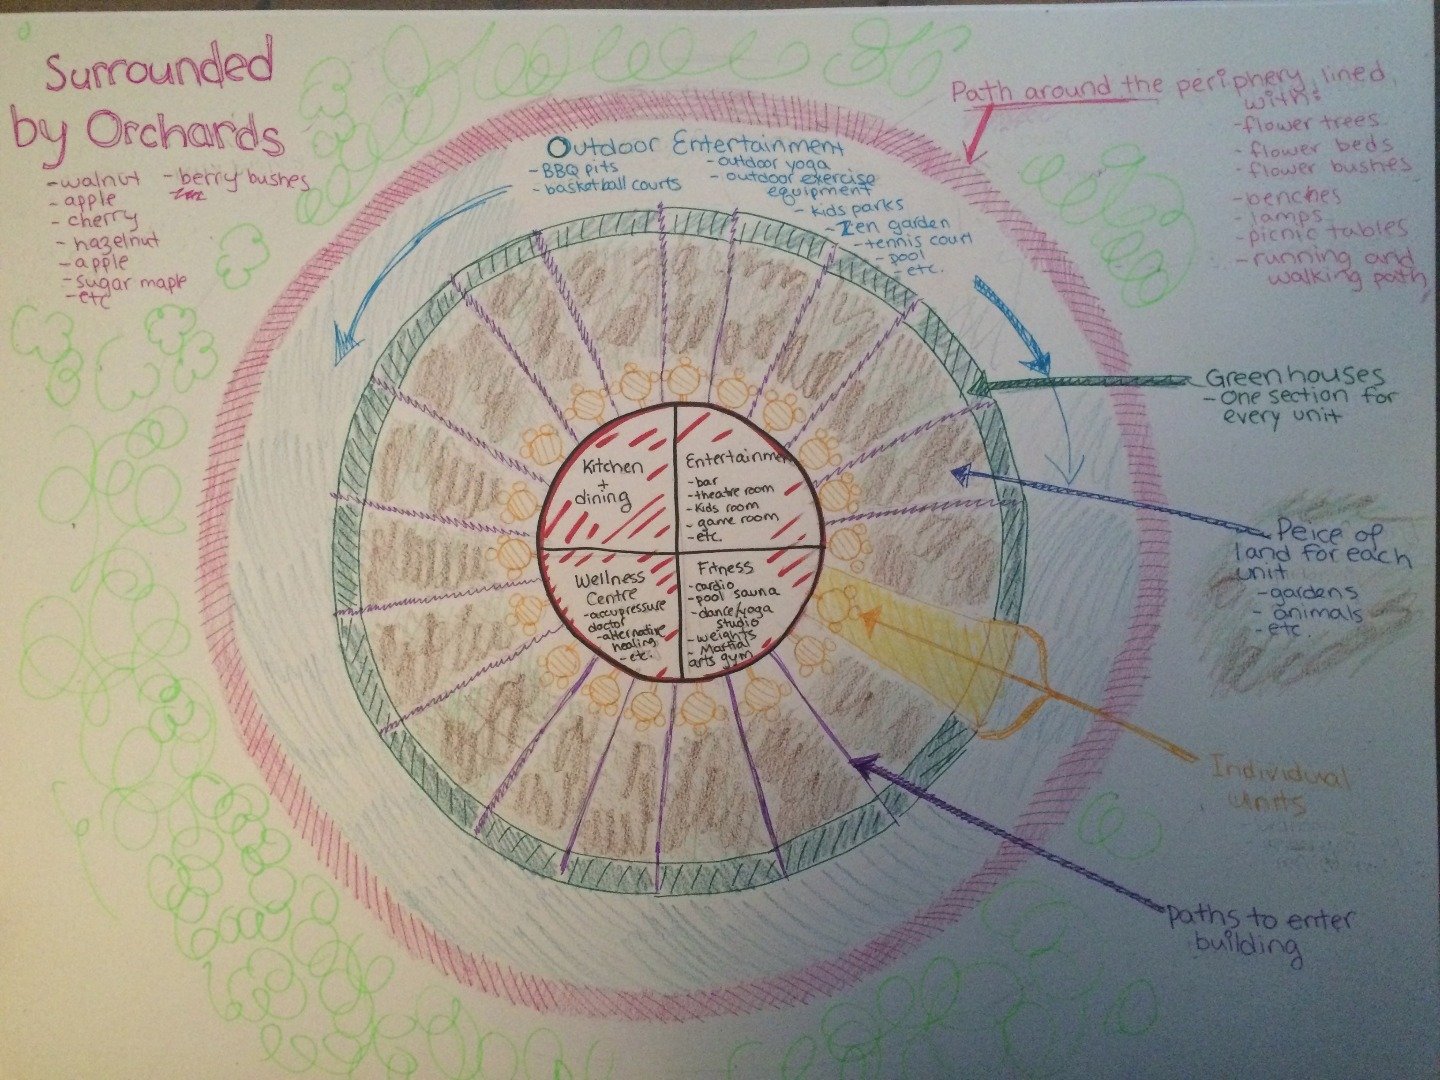 Surrounded
by Orchards
-walnut
-apple
-cherry
-hazelnut
-apple
-sugar maple
-etc
-berry bushes
Outdoor Entertainment
-BBQ pits
-basketball courts
-outdoor yoga
-outdoor exercise
equipment
-kids parks
-Zen garden
-tennis court
-pool
-etc.
Path around the periphery lined
with:
-flower trees
-flower beds
-flower bushes
-benches
-lamps
-picnic tables
-running and
walking path
Greenhouses
-One section for
every unit
Kitchen
+
dining
Entertainmen
-bar
-theatre room
-Kids room
-game room
-etc.
Wellness
Centre
-accupressure
doctor
-alternative
healing
-etc.
Fitness
-cardio
-pool sauna
-dance/yoga
studio
-weights
-Martial
arts gym
Peice of
land for each
unit
-gardens
-animals
-etc.
Individual
units
Paths to enter
building